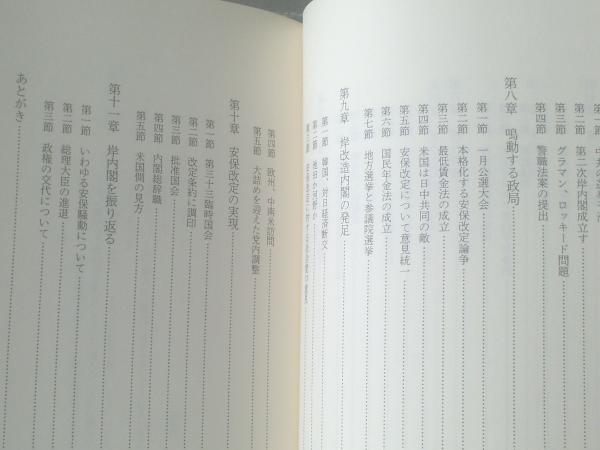 第二節 第二次岸内閣成立す
第三節 グラマン、ロッキード問題
第四節 警職法案の提出
第八章 鳴動する政局
第一節 一月公選大会
第二節 本格化する安保改定論争
第三節 最低賃金法の成立
第四節 米国は日中共同の敵
第五節 安保改定について意見統一
第六節 国民年金法の成立
第七節 地方選挙と参議院選挙
第九章 岸改造内閣の発足
第一節 韓国、対日経済断交
第二節
第四節 欧州、中南米訪問
第五節 大詰めを迎えた党内調整
第十章 安保改定の実現
第一節 第三十三臨時国会
第二節 改定条約に調印
第三節 批准国会
第四節 内閣総辞職
第五節 米国側の見方
第十一章 岸内閣を振り返る
第一節 いわゆる安保騒動について
第二節 総理大臣の進退
第三節 政権の交代について
あとがき